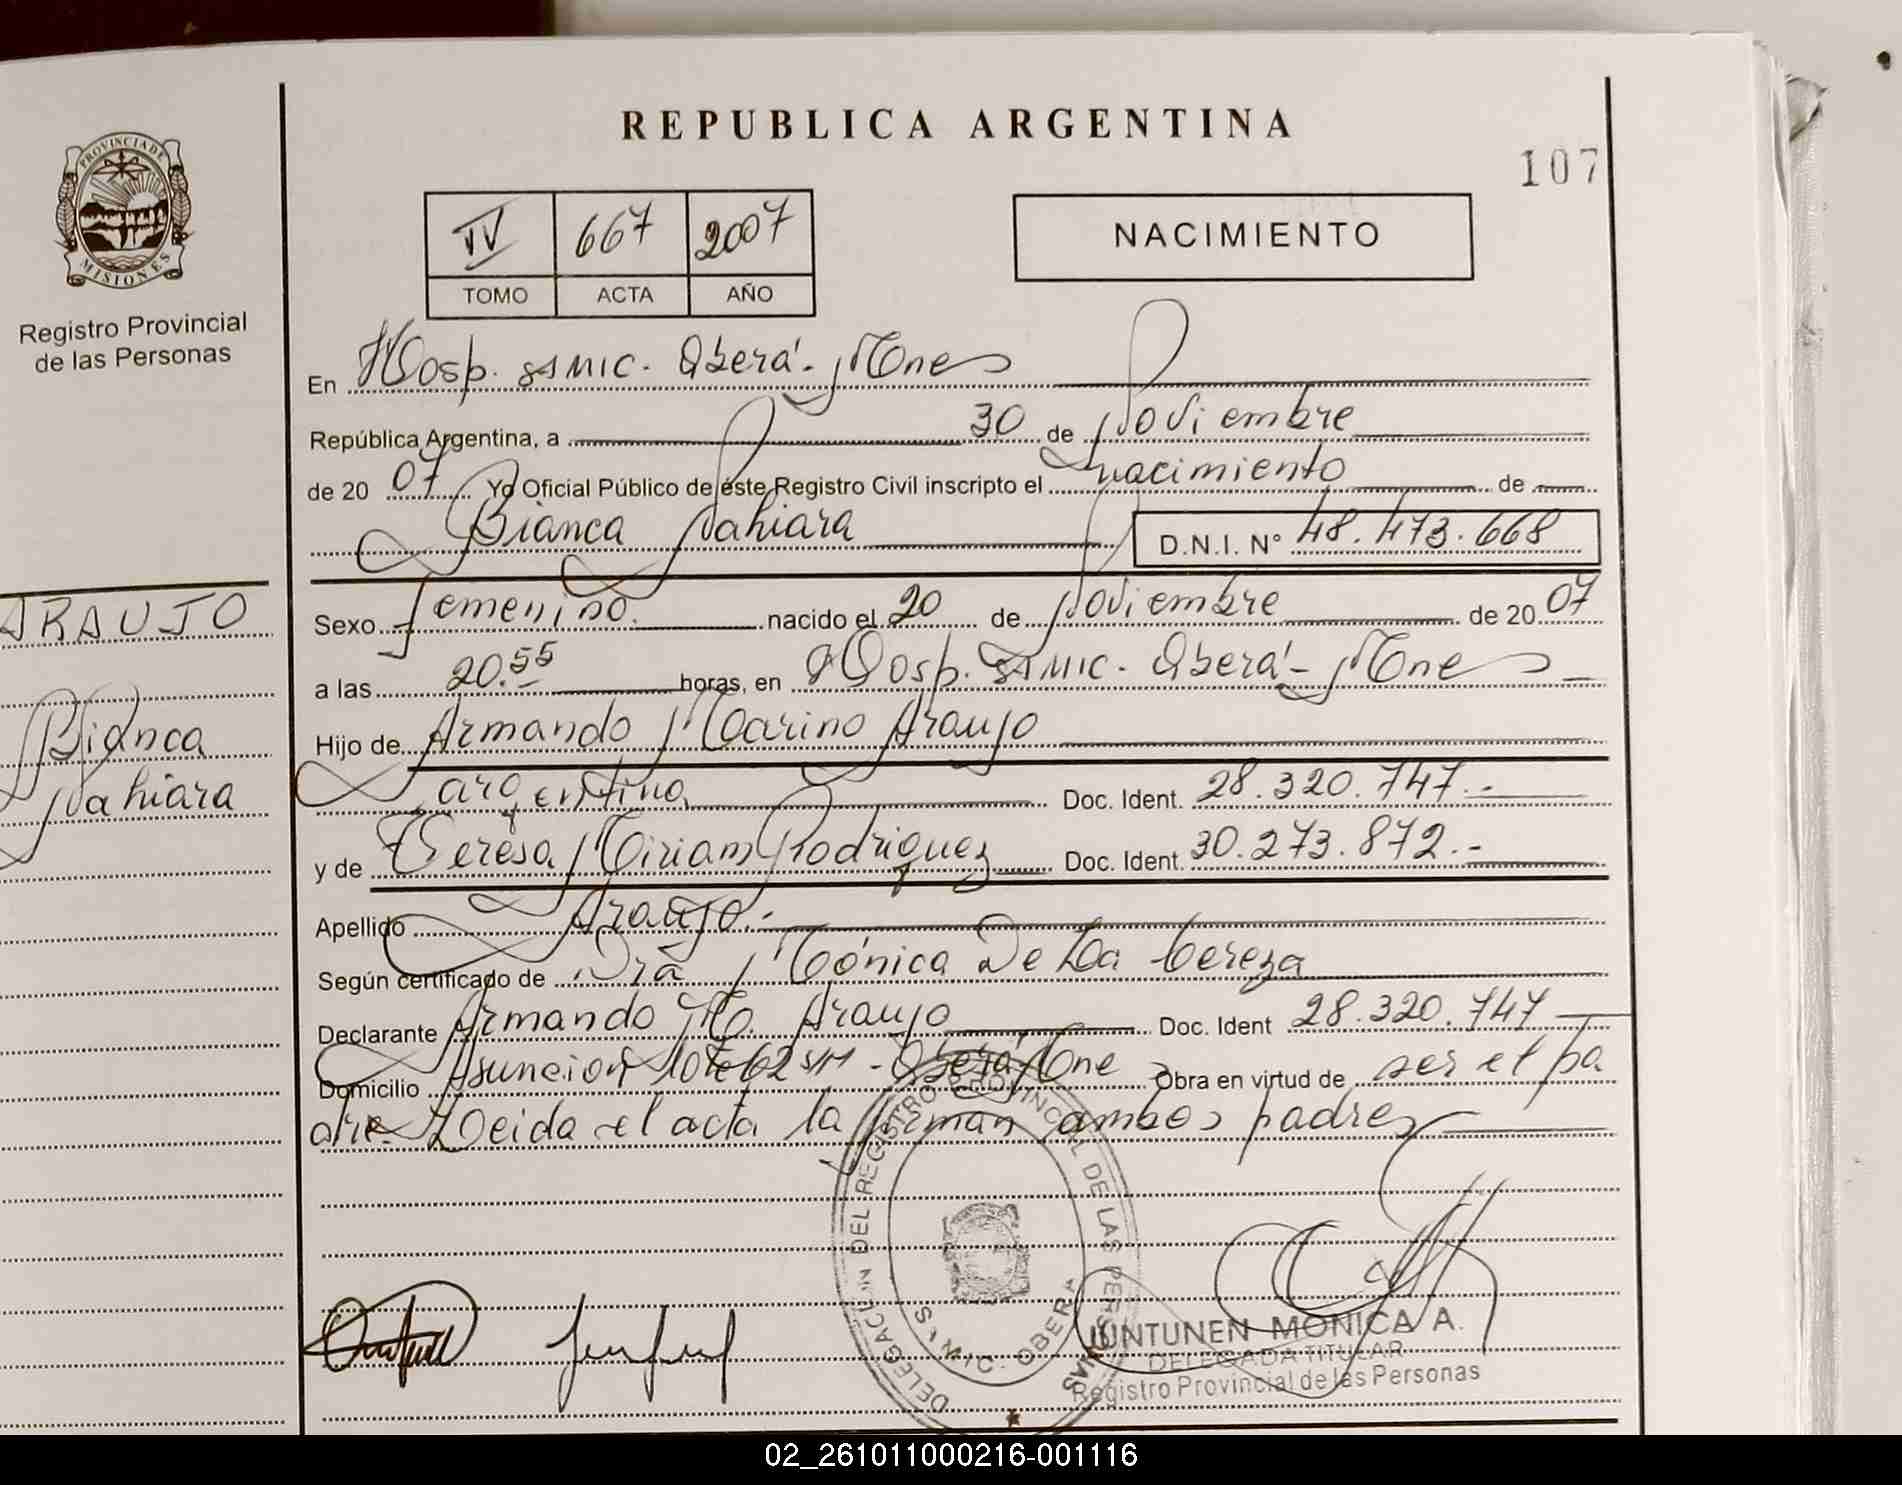 REPUBLICA ARGENTINA
107
PROVINCIA DE
MISIONES
Registro Provincial
de las Personas
IV 667 2007
TOMO ACTA AÑO
NACIMIENTO
En Hosp. SAMIC. Oberá - Mnes
República Argentina, a 30 de Noviembre
de 20 07 Yo Oficial Público de éste Registro Civil inscripto el nacimiento de
Bianca Nahiara D.N.I. N° 48.473.668
ARAUJO
Bianca
Nahiara
Sexo femenino. nacido el 20 de Noviembre de 20 07
a las 20.55 horas, en Hosp. SAMIC. Oberá - Mnes
Hijo de Armando Marino Araujo
argentina Doc. Ident. 28.320.747.-
y de Teresa Miriam Rodriguez Doc. Ident. 30.273.872.-
Apellido Araujo.-
Según certificado de Dra Mónica De La
Declarante Armando Mo. Araujo Doc. Ident 28.320.747
Domicilio Asuncion lote 62 s/n - Oberá Mne Obra en virtud de ser el pa
dre. Leida el acta la firman ambos padres
DELEGACION DEL REGISTRO PROVINCIAL DE LAS PERSONAS
OBERA
JUNTUNEN MONICA A.
DELEGADA TITULAR
Registro Provincial de las Personas
02_261011000216-001116